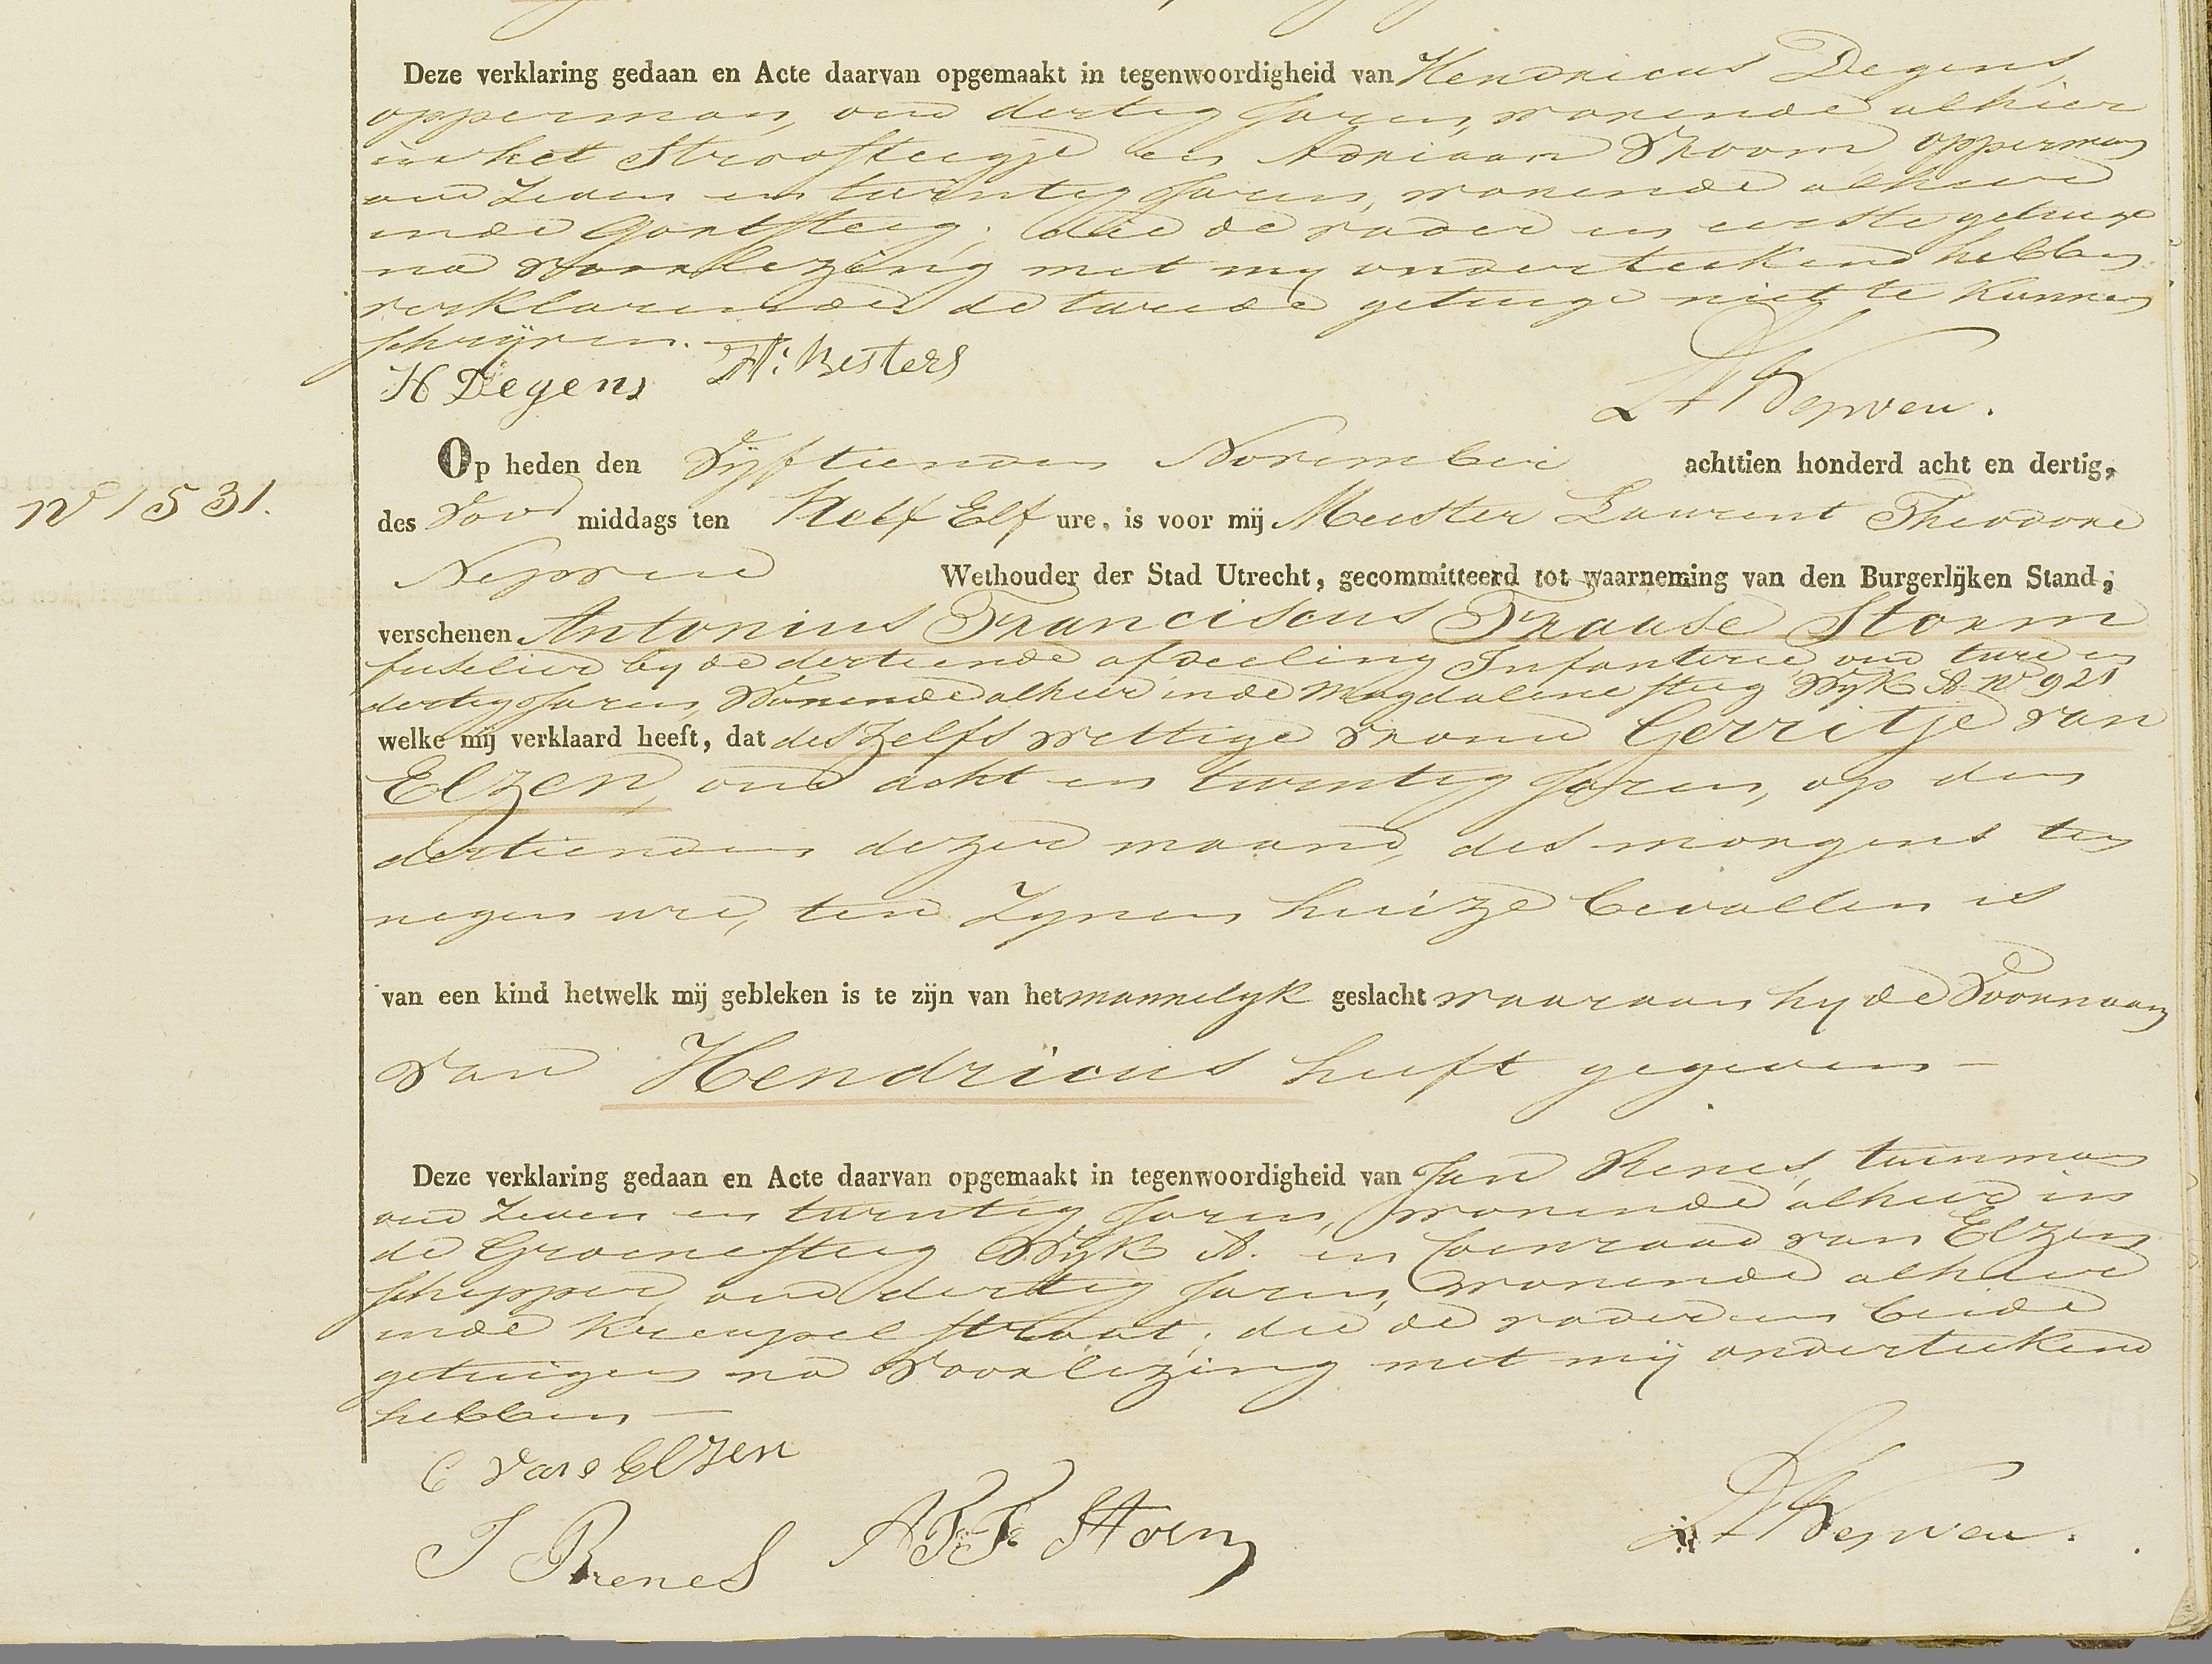 Deze verklaring gedaan en Acte daarvan opgemaakt in tegenwoordigheid van Hendricus Degens
opperman, oud dertig Jaren, wonende alhier
in het Strosteegje en Adriaan Vroom opperman
oud Zeven en twintig Jaren, wonende alhier
inde steeg; die de vader en eerste getuige
na voorlezing met my onderteekend hebben
verklarende de tweede getuige niet te kunnen
schrijven.
H Degens H: Besters
LT Nepveu.
Op heden den Vyftienden November achttien honderd acht en dertig,
No 1531.
des Voor middags ten Half Elf ure, is voor mij Meester Laurent Theodore
Nepveu Wethouder der Stad Utrecht, gecommitteerd tot waarneming van den Burgerlijken Stand,
verschenen Antonius Franciscus Fraase Storm
fuselier by de dertiende afdeeling Infanterie oud twee en
dertig Jaren, Wonende alhier inde Magdalene steeg Wyk A No 921
welke mij verklaard heeft, dat deszelfs wettige vrouw Gerritje van
Elzen, oud acht en twintig Jaren, op den
dertienden dezer maand, des morgens ten
negen ure, ten Zynen huize bevallen is
van een kind hetwelk mij gebleken is te zijn van het mannelyk geslacht waaraan hy de Voornaam
van Hendricus heeft gegeven —
Deze verklaring gedaan en Acte daarvan opgemaakt in tegenwoordigheid van Jan Renes, tuinman
oud Zeven en twintig Jaren, wonende alhier in
de Groenesteeg Wyk A. en Coenraad van Elzen
schipper, oud dertig Jaren, wonende alhier
inde Kreupelstraat; die de vader en beide
getuigen na voorlezing met mij onderteekend
hebben —
C van Elzen
J Renes A.F.F. Storm
LT Nepveu.